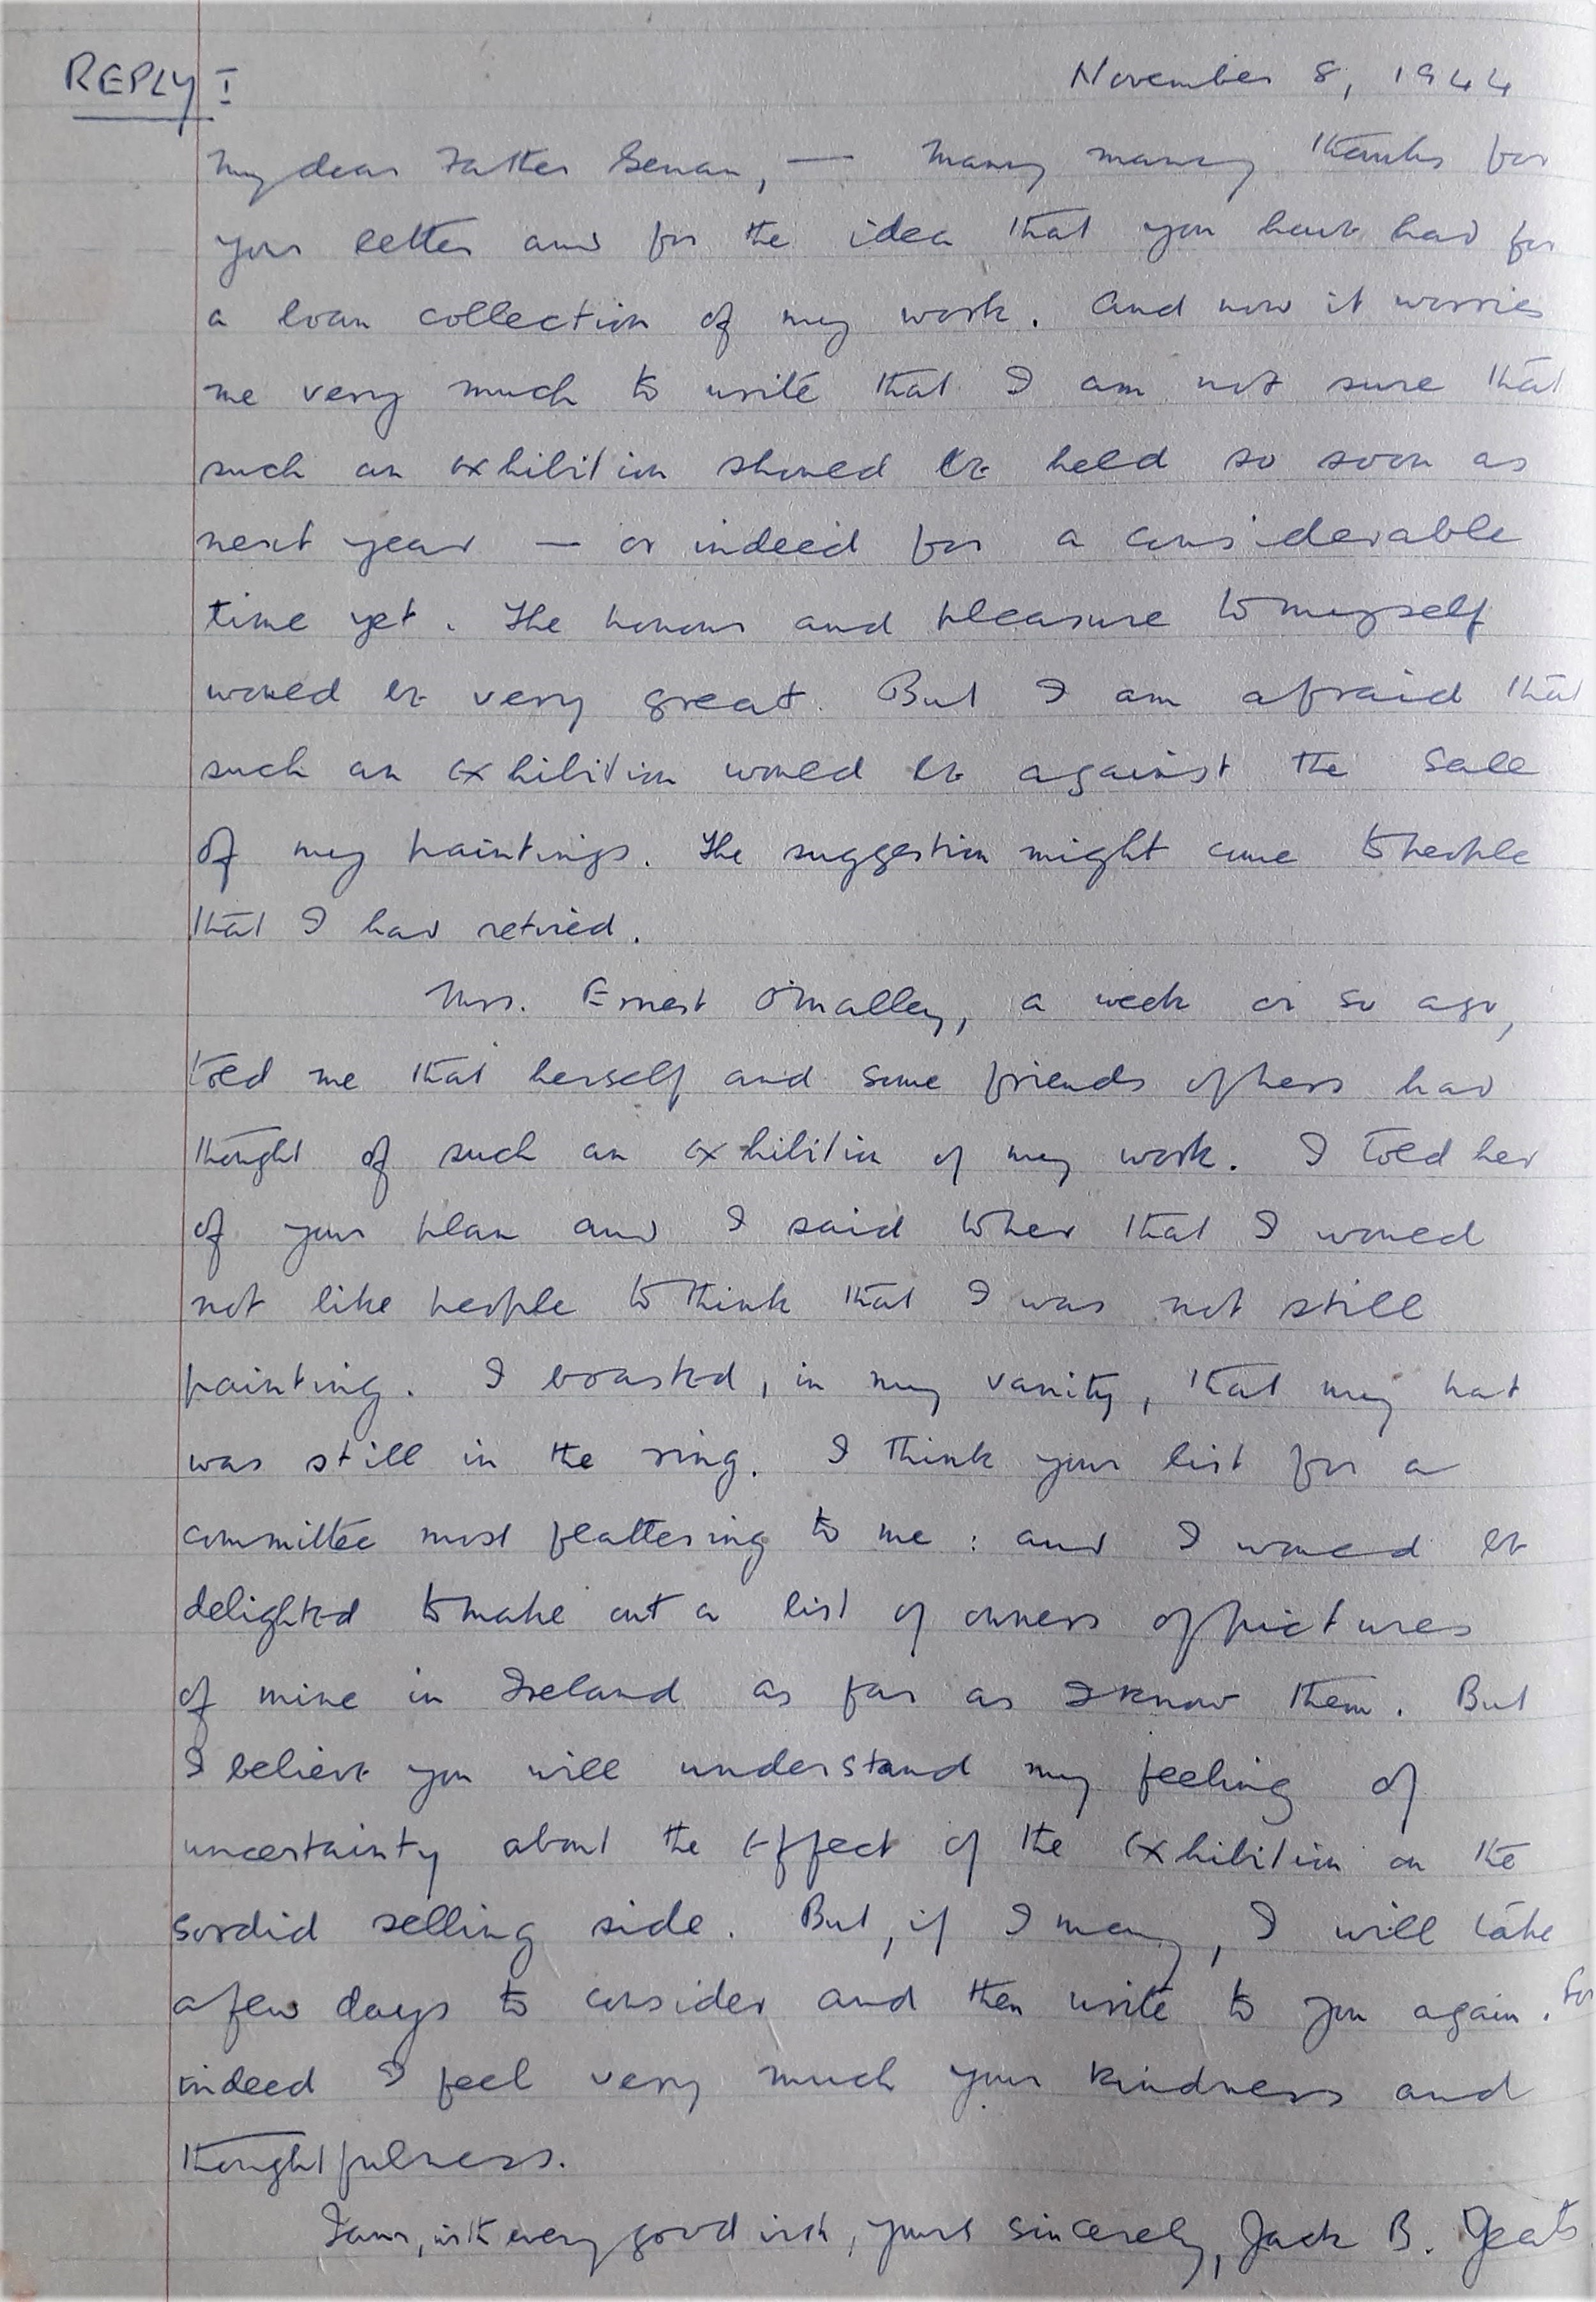 REPLY I
November 8, 1944
My dear Father Senan, — Many many thanks for
your letter and for the idea that you have had for
a loan collection of my work. And now it worries
me very much to write that I am not sure that
such an exhibition should be held so soon as
next year — or indeed for a considerable
time yet. The honour and pleasure to myself
would be very great. But I am afraid that
such an exhibition would be against the sale
of my paintings. The suggestion might come to people
that I had retired.
Mrs. Ernest O'Malley, a week or so ago,
told me that herself and some friends of hers had
thought of such an exhibition of my work. I told her
of your plan and I said to her that I would
not like people to think that I was not still
painting. I boasted, in my vanity, that my hat
was still in the ring. I think your list for a
committee most flattering to me: and I would be
delighted to make out a list of owners of pictures
of mine in Ireland as far as I know them. But
I believe you will understand my feeling of
uncertainty about the effect of the exhibition on the
sordid selling side. But, if I may, I will take
a few days to consider and then write to you again. For
indeed I feel very much your kindness and
thoughtfulness.
I am, with every good wish, yours sincerely, Jack B. Yeats